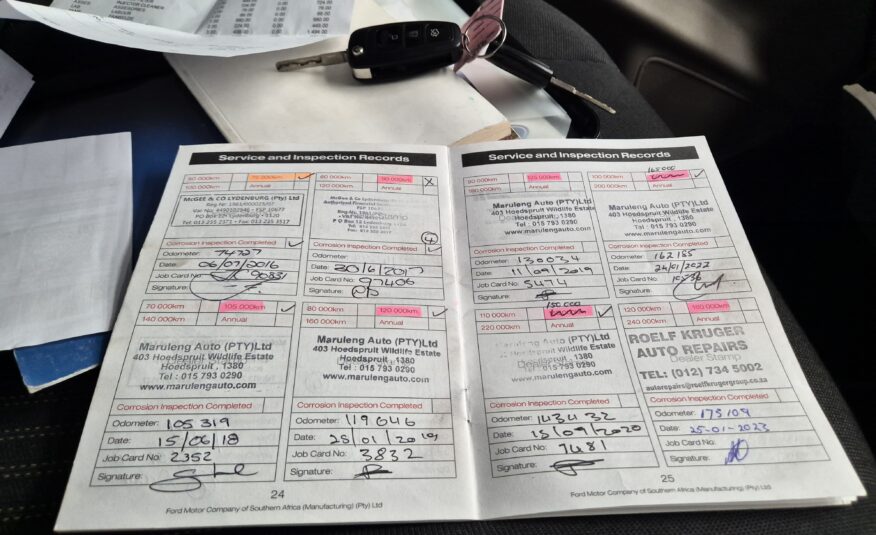 INJECTOR CLEANER
ACCESSORIES
LABOUR
Service and Inspection Records
75 000km
100 000km
Annual
McGEE & CO LYDENBURG (Pty) Ltd
PO Box 121 Lydenburg - 1120
Tel 013 235 2371 - Fax 013 235 3517
Corrosion Inspection Completed
Odometer: 74727
Date: 06/07/2016
Job Card No:
Signature:
60 000km
90 000km
X
120 000km
Annual
P O Box 12 Lydenburg
4
Corrosion Inspection Completed
Odometer:
Date: 30/6/2017
Job Card No: 97406
Signature:
70 000km
105 000km
140 000km
Annual
Maruleng Auto (PTY)Ltd
403 Hoedspruit Wildlife Estate
Hoedspruit, 1380
Tel : 015 793 0290
www.marulengauto.com
Corrosion Inspection Completed
Odometer: 105 319
Date: 15/06/18
Job Card No: 2352
Signature:
80 000km
120 000km
160 000km
Annual
Maruleng Auto (PTY)Ltd
403 Hoedspruit Wildlife Estate
Hoedspruit, 1380
Tel : 015 793 0290
www.marulengauto.com
Corrosion Inspection Completed
Odometer: 119046
Date:
Job Card No: 3832
Signature:
24
Ford Motor Company of Southern Africa (Manufacturing) (Pty) Ltd
Service and Inspection Records
90 000km
Annual
Maruleng Auto (PTY)Ltd
403 Hoedspruit Wildlife Estate
Hoedspruit, 1380
Tel : 015 793 0290
www.marulengauto.com
Corrosion Inspection Completed
Odometer: 130034
Date: 11/09/2019
Job Card No: 5474
Signature:
165 000
100 000km
200 000km
Annual
Maruleng Auto (PTY)Ltd
403 Hoedspruit Wildlife Estate
Hoedspruit, 1380
Tel : 015 793 0290
www.marulengauto.com
Corrosion Inspection Completed
Odometer: 162 185
Date: 24/01/2022
Job Card No: 10536
Signature:
150 000
110 000km
220 000km
Annual
Maruleng Auto (PTY)Ltd
403 Hoedspruit Wildlife Estate
Hoedspruit, 1380
Tel : 015 793 0290
www.marulengauto.com
Corrosion Inspection Completed
Odometer: 143432
Date: 15/09/2020
Job Card No: 7481
Signature:
120 000km
240 000km
Annual
ROELF KRUGER
AUTO REPAIRS
Dealer Stamp
TEL: (012) 734 5002
autorepairs@roelfkrugergroup.co.za
Corrosion Inspection Completed
Odometer: 175109
Date: 25-01-2023
Job Card No:
Signature:
25
Ford Motor Company of Southern Africa (Manufacturing) (Pty) Ltd